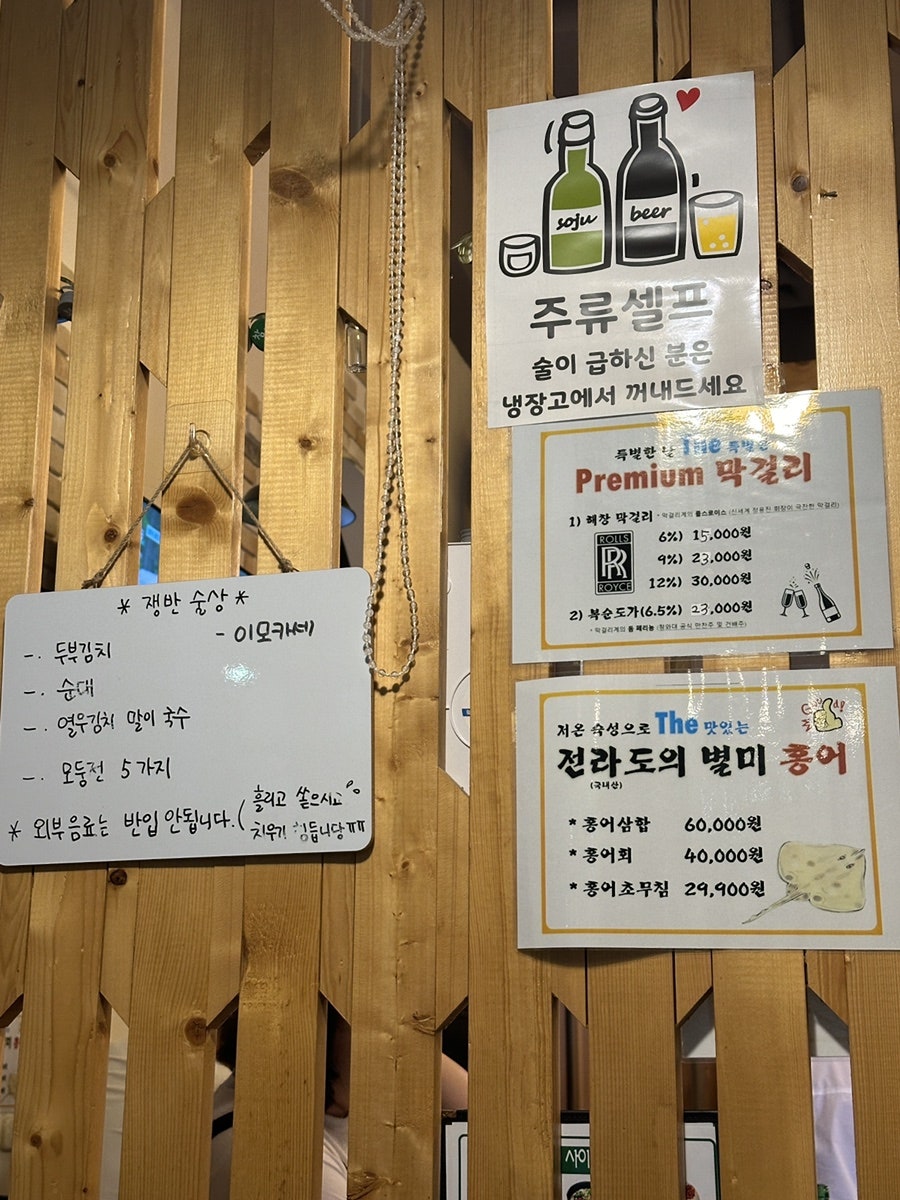 * 쟁반 술상 *
- 이모카세
-. 두부김치
-. 순대
-. 열무김치 말이 국수
-. 모둠전 5가지
* 외부음료는 반입 안됩니다. (흘리고 쏟으시고
치우기 힘듭니당ㅠㅠ
soju beer
주류셀프
술이 급하신 분은
냉장고에서 꺼내드세요
특별한 날 The 특별한
Premium 막걸리
1) 해창 막걸리 * 막걸리계의 롤스로이스 (신세계 정용진 회장이 극찬한 막걸리)
ROLLS
RR
ROYCE
6%) 15,000원
9%) 23,000원
12%) 30,000원
2) 복순도가(6.5%) 23,000원
* 막걸리계의 돔 페리뇽 (청와대 공식 만찬주 및 건배주)
저온 숙성으로 The 맛있는
전라도의 별미 홍어
(국내산)
* 홍어삼합 60,000원
* 홍어회 40,000원
* 홍어초무침 29,900원
사이